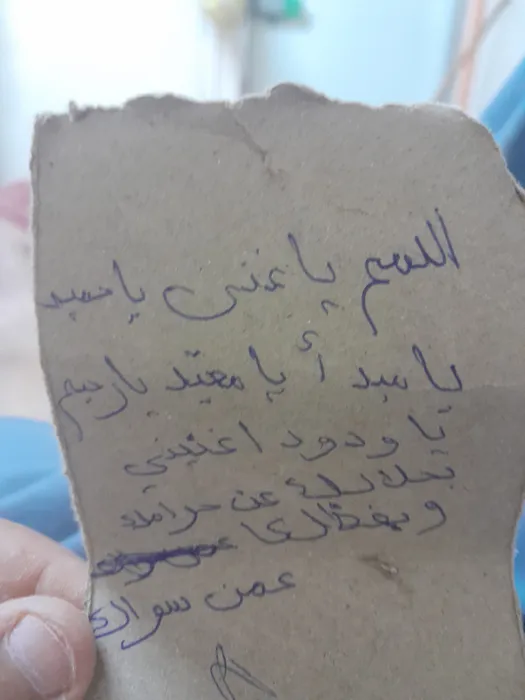 اللهم يا غني يا حميد
يا مبدأ يا معيد يا رحيم
يا ودود اغنيني
بحلالك عن حرامك
وبفضلك
عمن سواك